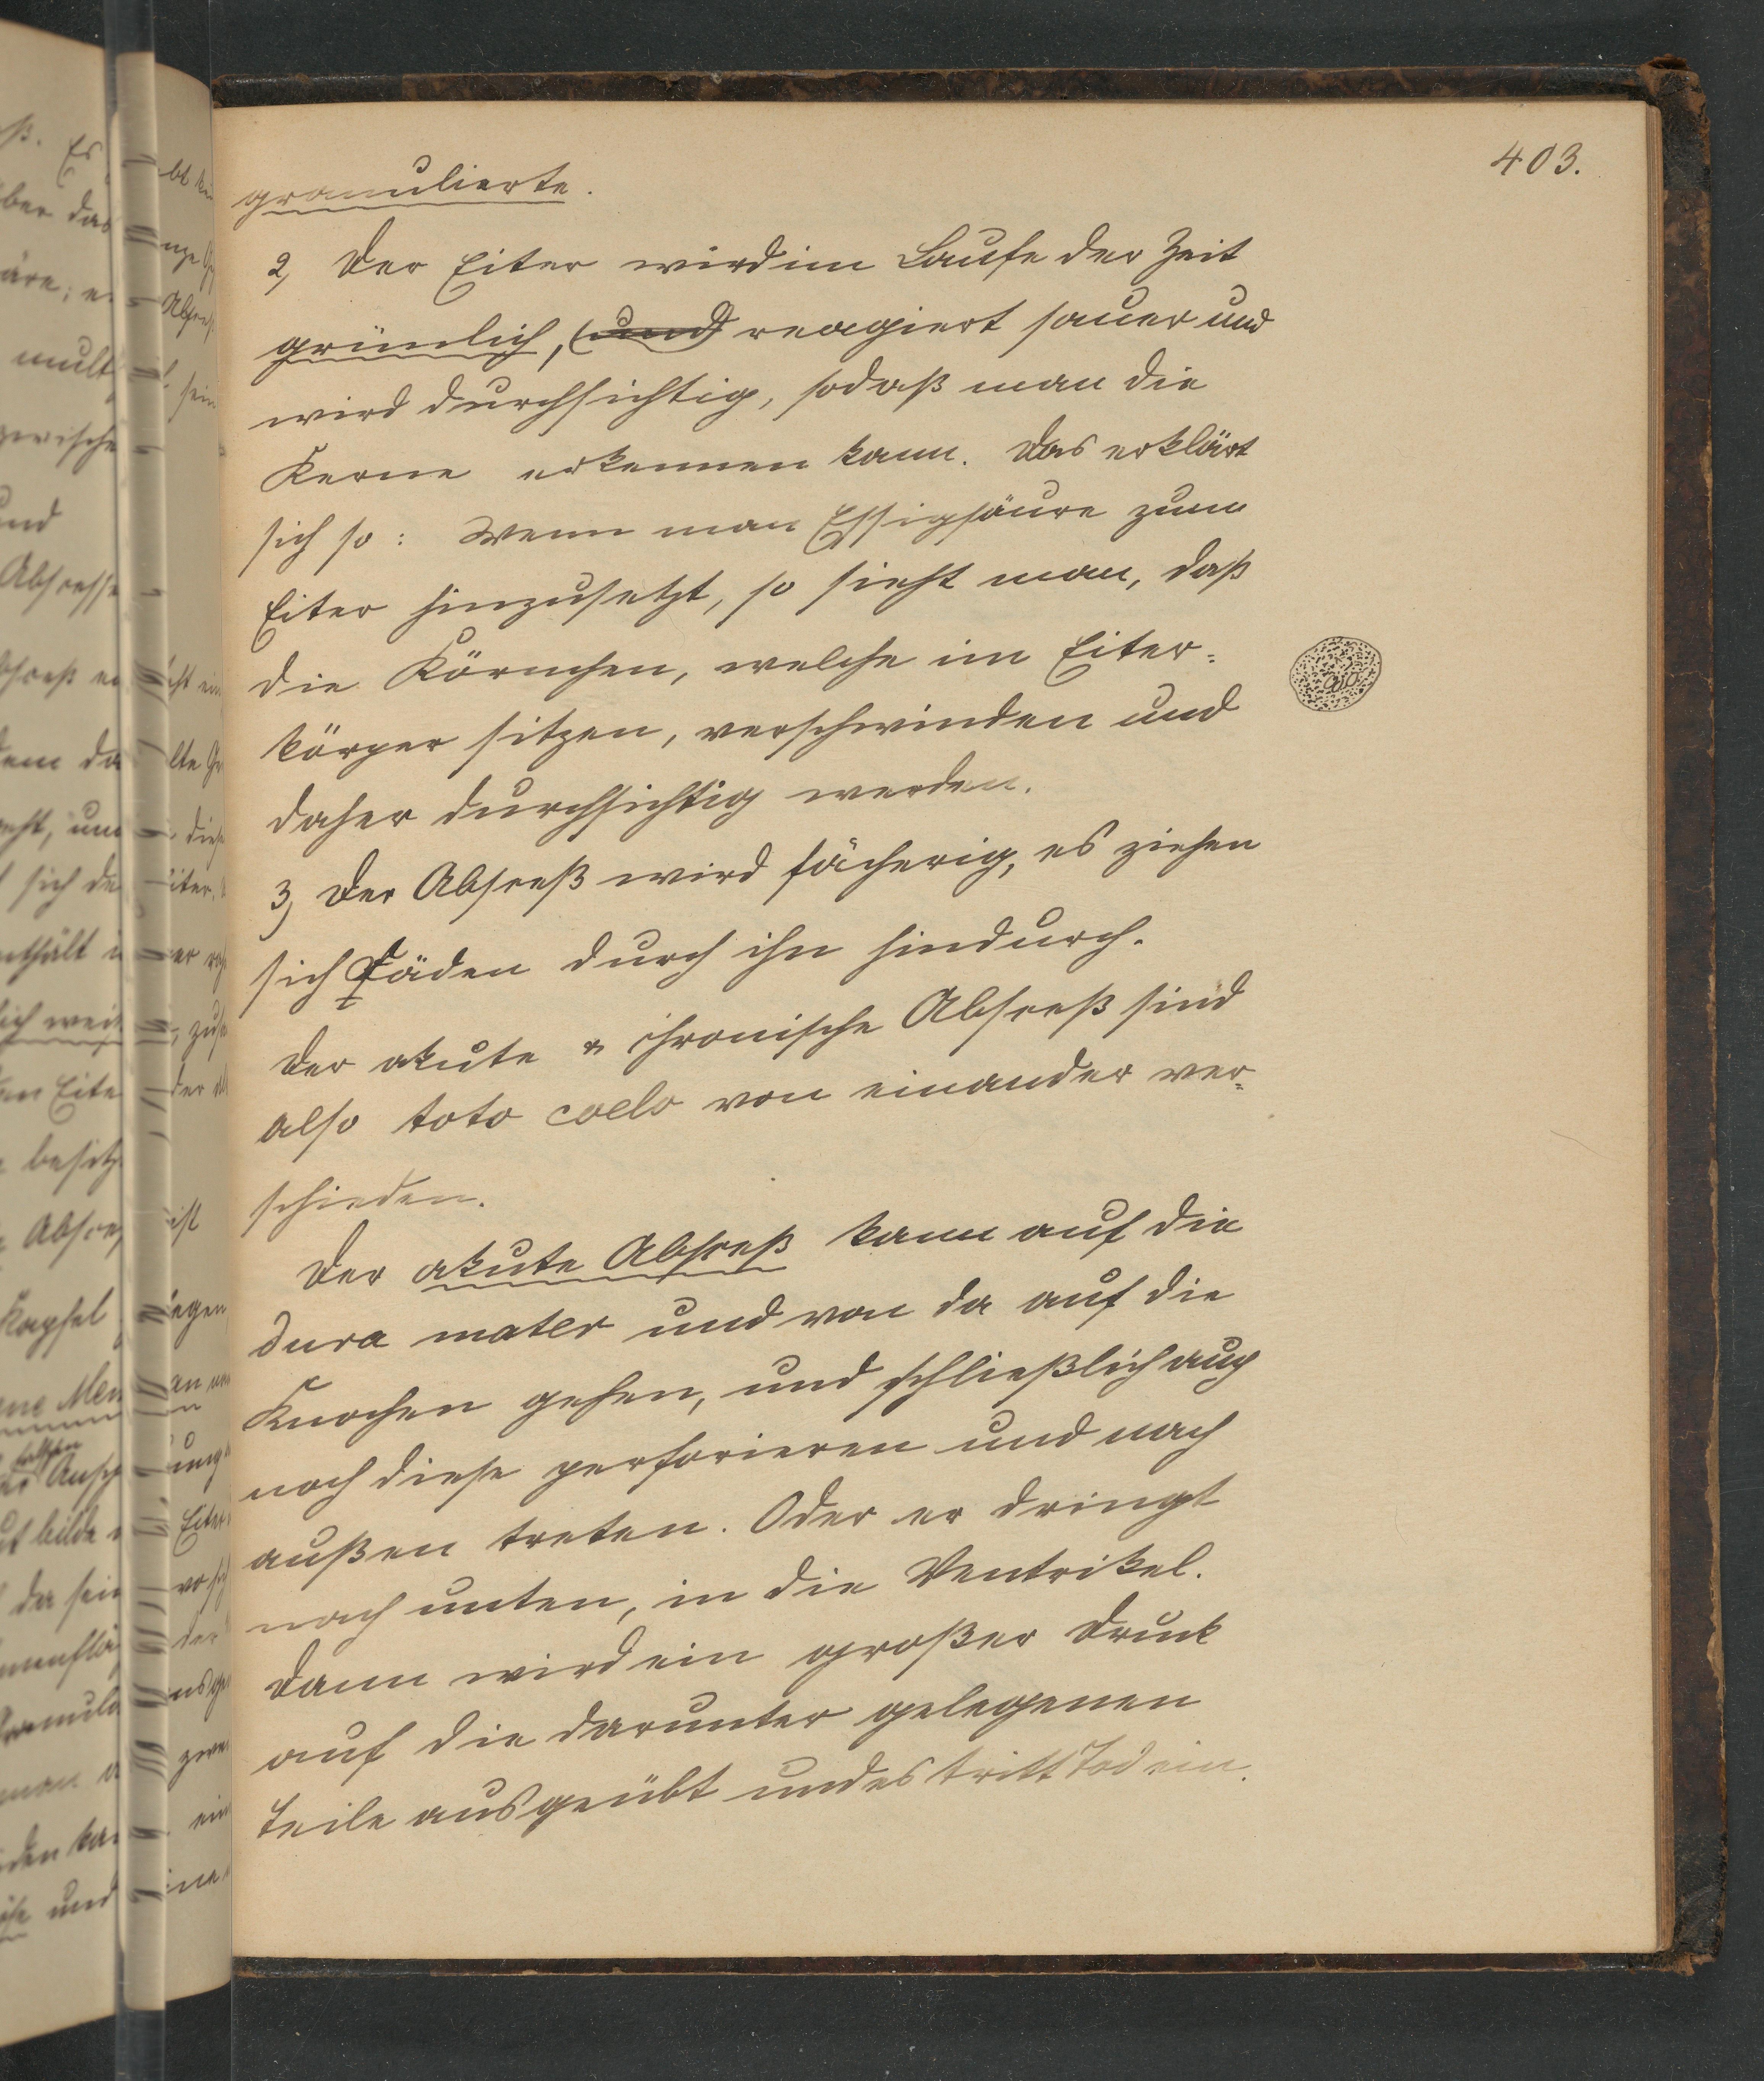 403.
granulierte.
2, Der Eiter wird im Laufe der Zeit
grünlich, (und) reagiert sauer und
wird durchsichtig, sodaß man die
Kerne erkennen kann. Das erklärt
sich so: Wenn man Essigsäure zum
Eiter hinzusetzt, so sieht man, daß
die Körnchen, welche im Eiter-
körper sitzen, verschwinden und
daher durchsichtig werden.
3, Der Absceß wird fächerig, es ziehen
sich Fäden durch ihn hindurch.
Der akute u chronische Absceß sind
also toto coelo von einander ver-
schieden.
Der akute Absceß kann auf die
dura mater und von da auf die
Knochen gehen, und schließlich auch
noch diese perforieren und nach
außen treten. Oder er dringt
nach unten, in die Ventrikel.
Dann wird ein großer Druck
auf die darunter gelegenen
Teile ausgeübt und es tritt Tod ein.